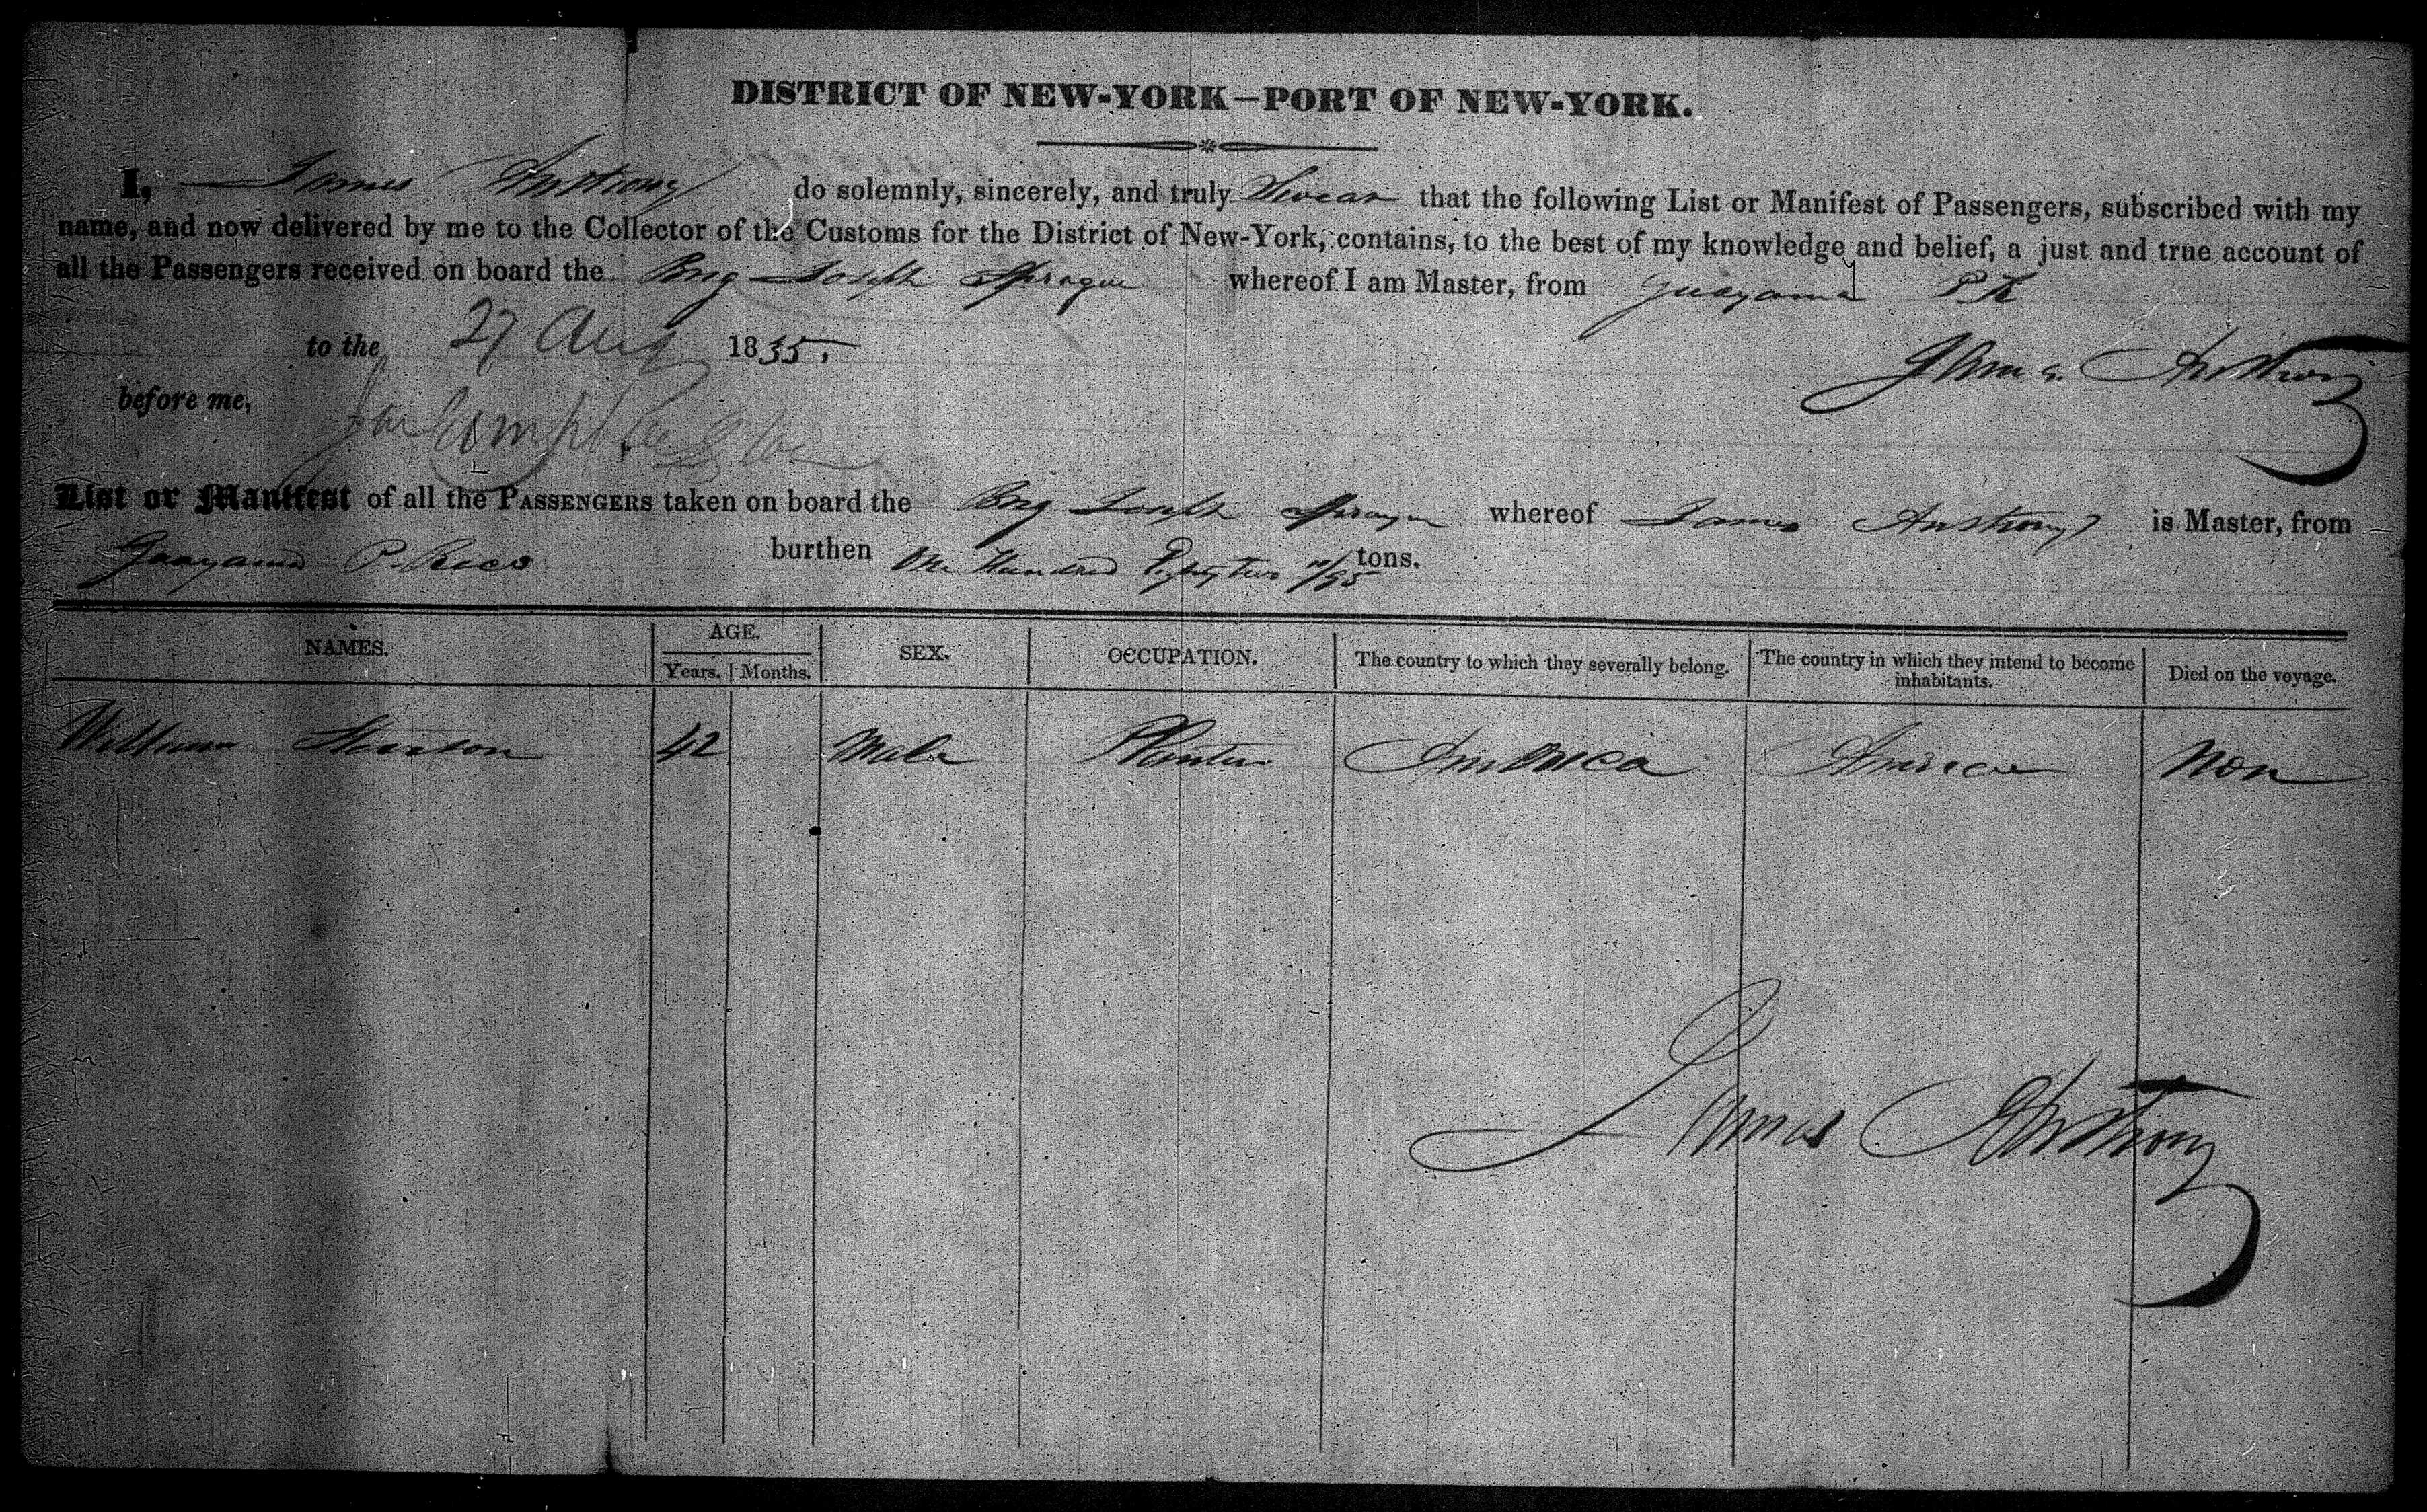 DISTRICT OF NEW-YORK—PORT OF NEW-YORK.
I, James Anthony do solemnly, sincerely, and truly Swear that the following List or Manifest of Passengers, subscribed with my
name, and now delivered by me to the Collector of the Customs for the District of New-York, contains, to the best of my knowledge and belief, a just and true account of
all the Passengers received on board the Brig Joseph Sprague whereof I am Master, from Guayama P R
to the 27 Aug 1835.
James Anthony
before me,
List or Manifest of all the PASSENGERS taken on board the Brig Joseph Sprague whereof James Anthony is Master, from
Guayama P. Rico burthen One Hundred Eighty two /95 tons.
NAMES. AGE. SEX. OCCUPATION. The country to which they severally belong. The country in which they intend to become inhabitants. Died on the voyage.
Years. Months.
William 42 Male Planter America America Non
James Anthony